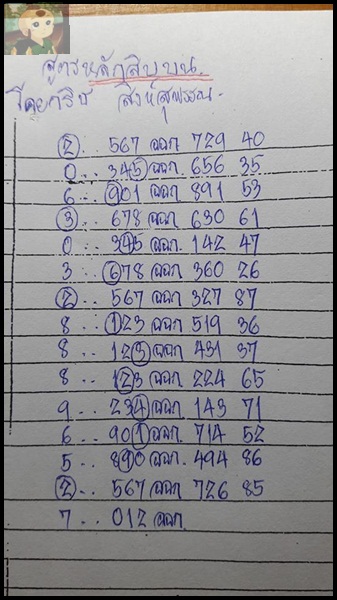 สูตรหลักสิบบน.
โดยกริช สิงห์สุพรรณ.
2.. 567 ออก 729 40
0.. 345 ออก 656 35
6.. 901 ออก 891 53
3.. 678 ออก 630 61
0.. 345 ออก. 142 47
3.. 678 ออก. 360 26
2.. 567 ออก 327 87
8.. 123 ออก 519 36
8.. 123 ออก. 431 37
8.. 123 ออก. 224 65
9.. 234 ออก. 143 71
6.. 901 ออก. 714 52
5.. 890 ออก. 494 86
2.. 567 ออก 726 85
7.. 012 ออก.